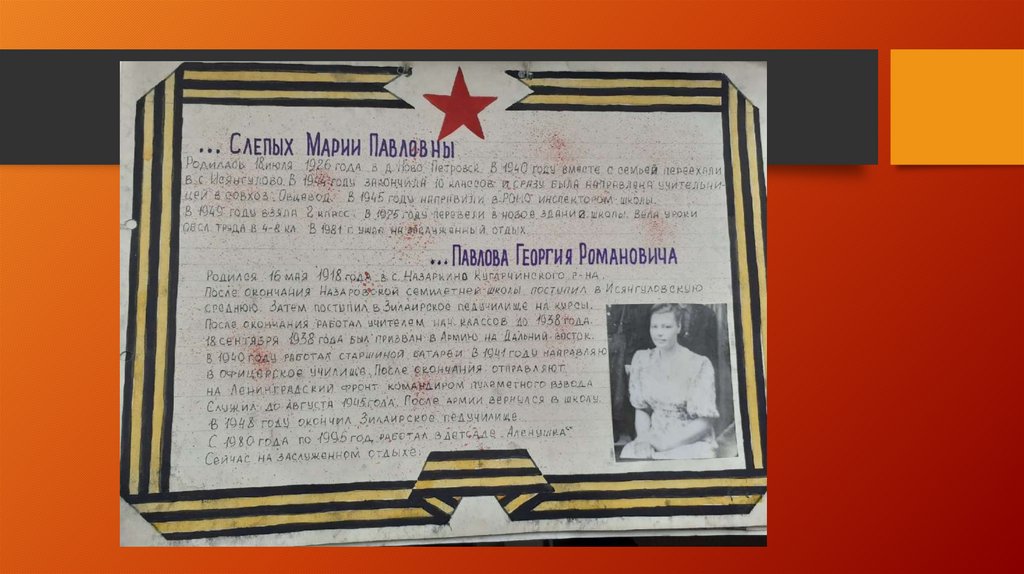 ... Слепых Марии Павловны
Родилась 18 июля 1926 года в д. Ново-Петровск. В 1940 году вместе с семьей переехали
в с. Исянгулово. В 1944 году закончила 10 классов и сразу была направлена учительни-
цей в совхоз "Овцевод". В 1945 году направили в РОНО инспектором школы.
В 1949 году взяла 2 класс. В 1975 году перевели в новое здание школы. Вела уроки
обсл. труда в 4-8 кл. В 1981 г. ушла на заслуженный отдых.
... Павлова Георгия Романовича
Родился 16 мая 1918 года в с. Назаркино Кугарчинского р-на.
После окончания Назаровской семилетней школы поступил в Исянгуловскую
среднюю. Затем поступил в Зилаирское педучилище на курсы.
После окончания работал учителем нач. классов до 1938 года.
18 сентября 1938 года был призван в Армию на Дальний восток.
В 1940 году работал старшиной батареи. В 1941 году направляю
в офицерское училище. После окончания отправляют
на Ленинградский фронт командиром пулеметного взвода
Служил до августа 1945 года. После армии вернулся в школу.
В 1948 году окончил Зилаирское педучилище.
С 1980 года по 1995 год работал в детсаде "Аленушка"
Сейчас на заслуженном отдыхе.